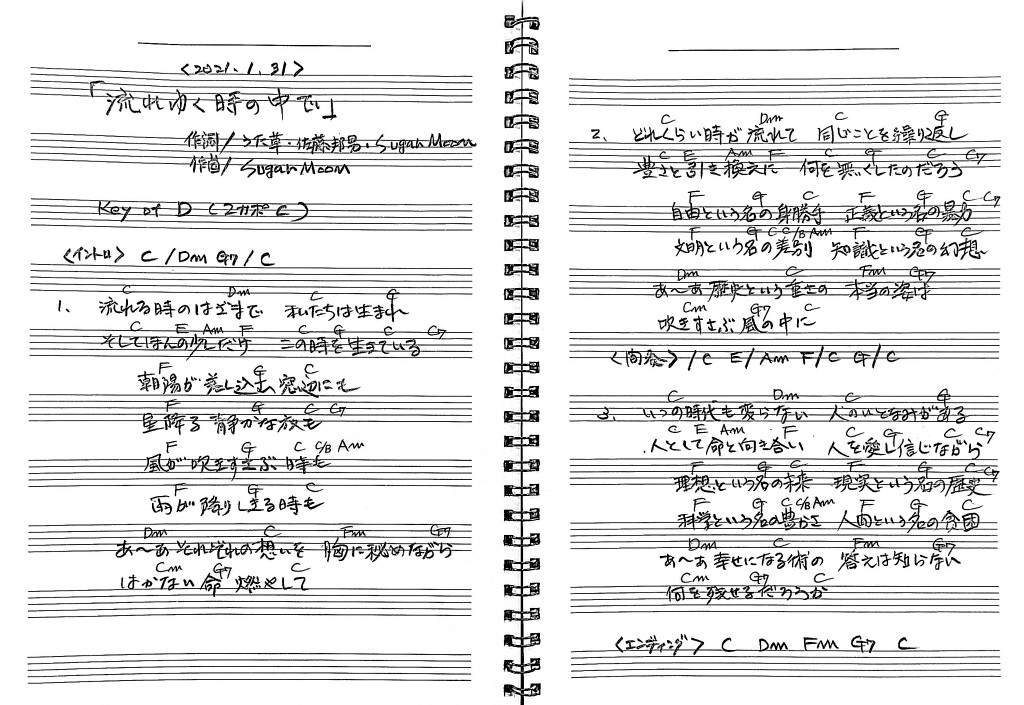 <2021.1.31>
「流れゆく時の中で」
作詞/うた草・佐藤邦男・Sugar Moon
作曲/Sugar Moon
Key of D (2カポ C)
<イントロ> C / Dm G7 / C
C Dm C G
1、 流れる時のはざまで 私たちは生まれ
C E Am F C G C C7
そしてほんの少しだけ この時を生きている
F G C
朝陽が差し込む窓辺にも
F G C C7
星降る静かな夜も
F G C C/B Am
風が吹きすさぶ時も
F G C
雨が降りしきる時も
Dm C Fm G7
あ〜あ それぞれの想いを 胸に秘めながら
Cm G7 C
はかない命 燃やして
C Dm C G
2、 どれくらい時が流れて 同じことを繰り返し
C E Am F C G C C7
豊さと引き換えに 何を無くしたのだろう
F G C F G C C7
自由という名の身勝手 正義という名の暴力
F G C C/B Am F G C
文明という名の差別 知識という名の幻想
Dm C Fm G7
あ〜あ 歴史という重さの 本当の姿は
Cm G7 C
吹きすさぶ風の中に
<間奏> / C E / Am F / C G / C
C Dm C G
3、 いつの時代も変らない 人のいとなみがある
C E Am F C G C C7
人として命と向き合い 人を愛し信じながら
F G C F G C C7
理想という名の未来 現実という名の歴史
F G C C/B Am F G C
科学という名の豊かさ 人間という名の貧困
Dm C Fm G7
あ〜あ 幸せになる術の 答えは知らない
Cm G7 C
何を残せるだろうか
<エンディング> C Dm Fm G7 C